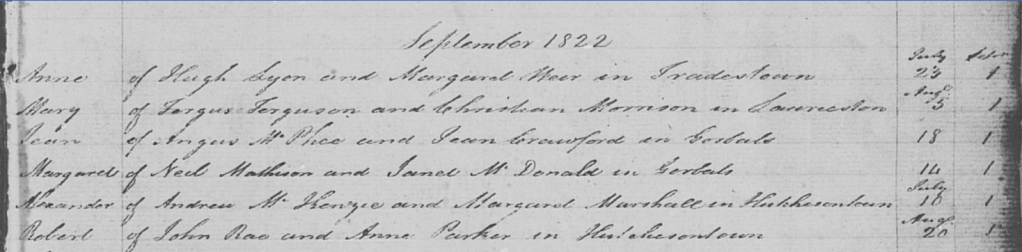 September 1822
Anne of Hugh Lyon and Margaret Weir in Tradestown July 23 Sepr 1
Mary of Fergus Ferguson and Christian Morrison in Laurieston Augt 5 1
Jean of Angus McPhee and Jean Crawford in Gorbals 18 1
Margaret of Neil Mathison and Janet McDonald in Gorbals 14 1
Alexander of Andrew McKenzie and Margaret Marshall in Hutchesontown July 10 1
Robert of John Rae and Anne Parker in Hutchesontown Augt 20 1